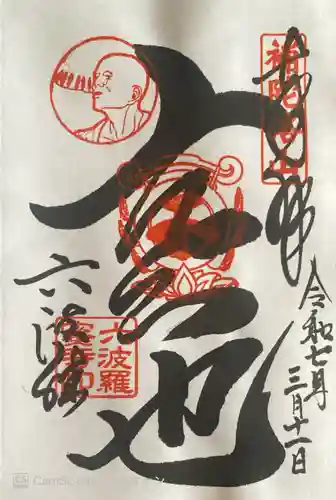 奉拝
補陀洛山
令和七年
三月十一日
空也
六波羅
六波羅
蜜寺印